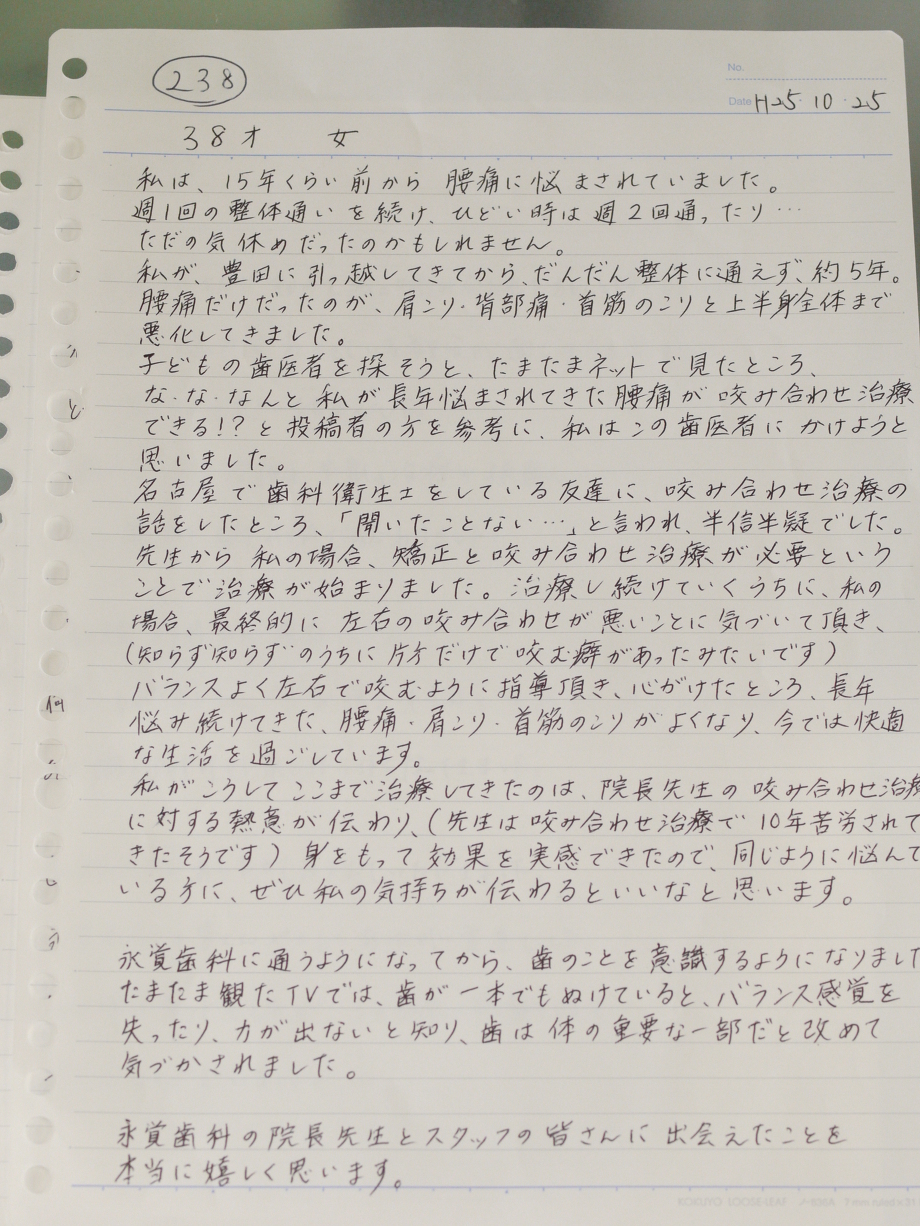 238
No.
Date H25・10・25
38才 女
私は、15年くらい前から 腰痛に悩まされていました。
週1回の整体通いを続け、ひどい時は週2回通ったり…
ただの気休めだったのかもしれません。
私が、豊田に引っ越してきてから、だんだん整体に通えず、約5年。
腰痛だけだったのが、肩こり・背部痛・首筋のこりと上半身全体まで
悪化してきました。
子どもの歯医者を探そうと、たまたまネットで見たところ、
な・な・なんと 私が長年悩まされてきた腰痛が 咬み合わせ治療
できる!?と投稿者の方を参考に、私はこの歯医者に かけようと
思いました。
名古屋で歯科衛生士をしている友達に、咬み合わせ治療の
話をしたところ、「聞いたことない…」と言われ、半信半疑でした。
先生から 私の場合、矯正と咬み合わせ治療が必要という
ことで治療が始まりました。治療し続けていくうちに、私の
場合、最終的に 左右の咬み合わせが悪いことに気づいて頂き、
(知らず知らずのうちに片方だけで咬む癖があったみたいです)
バランスよく左右で咬むように指導頂き、心がけたところ、長年
悩み続けてきた、腰痛・肩こり・首筋のこりがよくなり、今では快適
な生活を過ごしています。
私がこうしてここまで治療してきたのは、院長先生の咬み合わせ治療
に対する熱意が伝わり、(先生は咬み合わせ治療で10年苦労されて
きたそうです)身をもって効果を実感できたので、同じように悩んで
いる方に、ぜひ私の気持ちが伝わるといいなと思います。
永覚歯科に通うようになってから、歯のことを意識するようになりました
たまたま観たTVでは、歯が一本でもぬけていると、バランス感覚を
失ったり、力が出ないと知り、歯は体の重要な一部だと改めて
気づかされました。
永覚歯科の院長先生とスタッフの皆さんに出会えたことを
本当に嬉しく思います。
KOKUYO LOOSE-LEAF